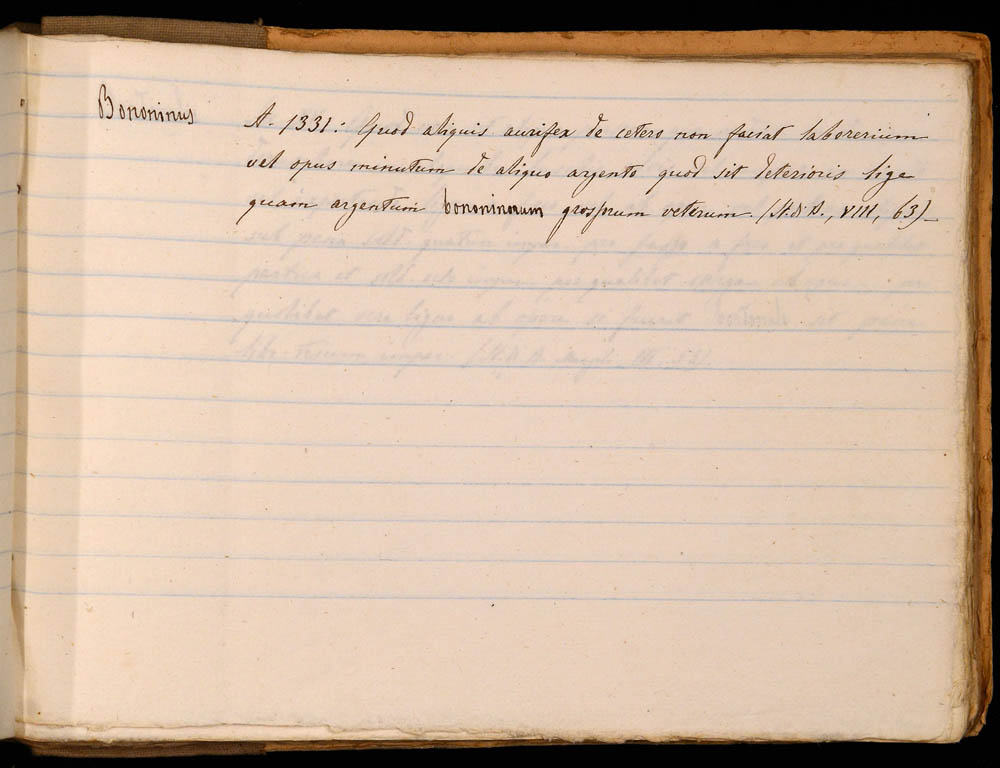 Bononinus
A. 1331: Quod aliquis aurifex de cetero non faciat laborerium
vel opus minutum de aliquo argento quod sit deterioris lige
quam argentum bononinorum grossorum veterum. (St. d. B., VIII, 63)_